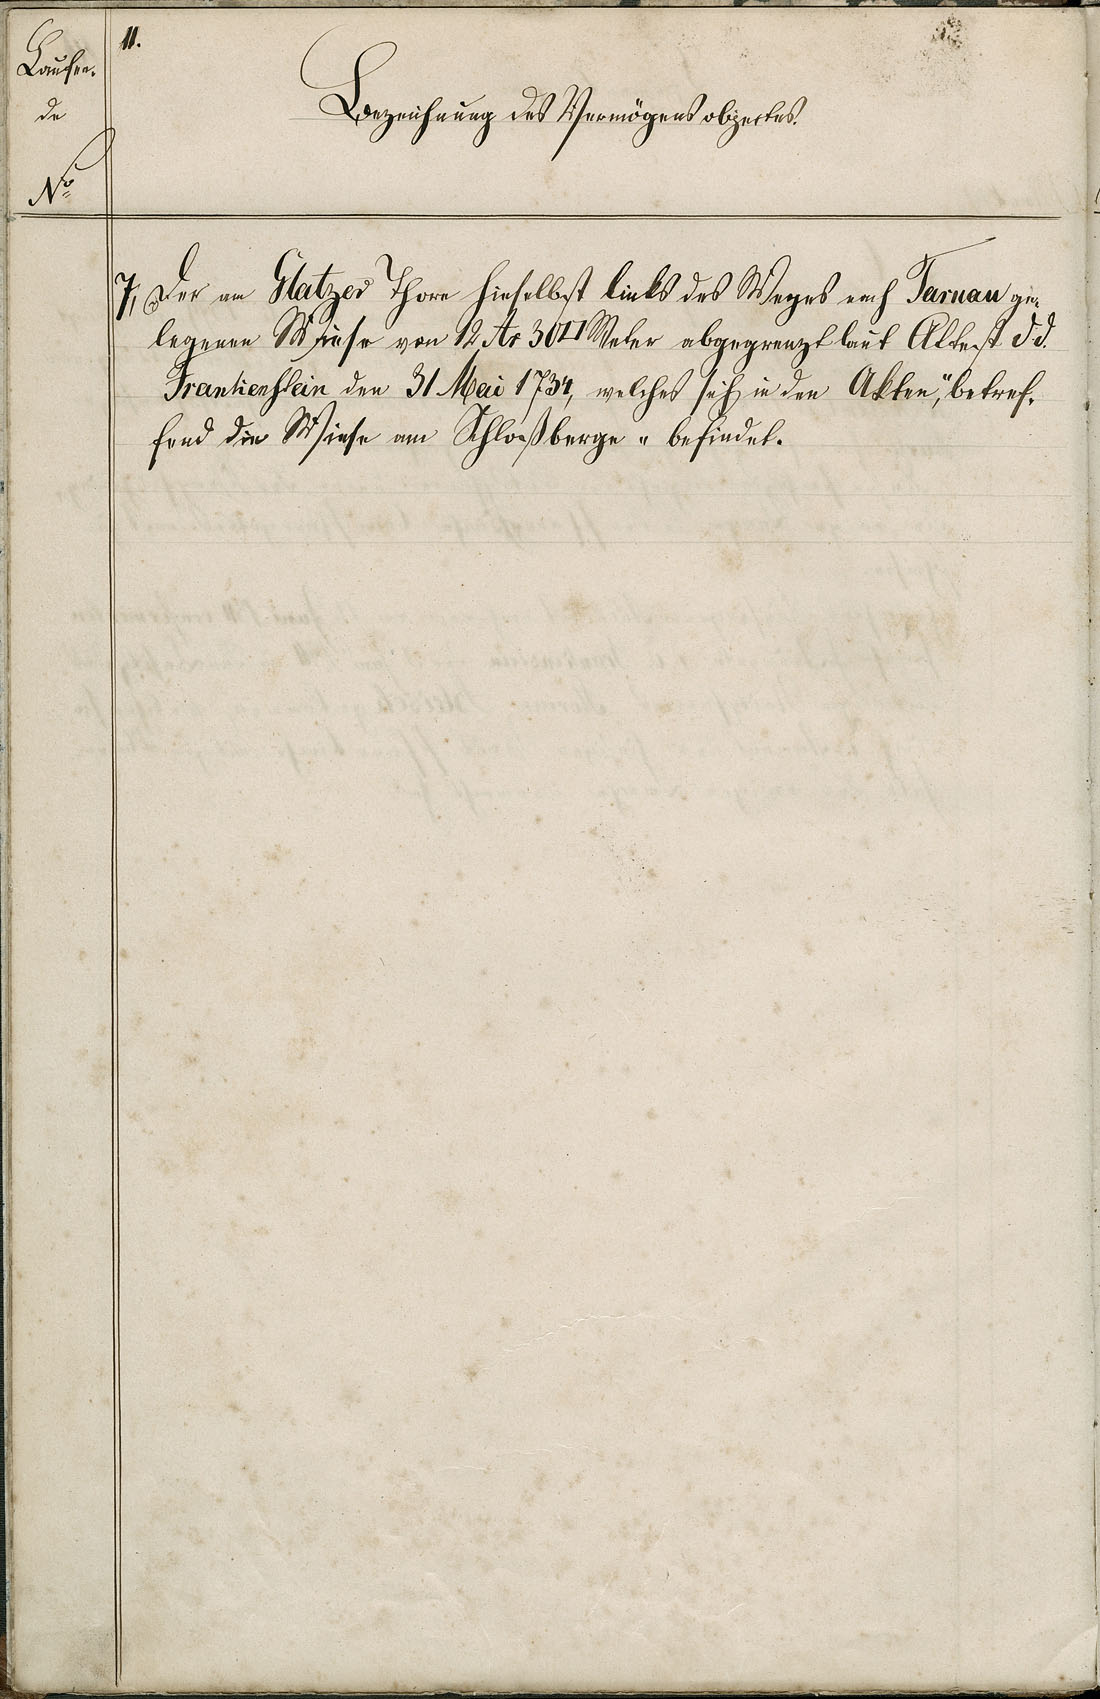 11.
Laufen-
de
No
Bezeichnung des Vermögensobjectes.
7, Der am Glatzer Thore hieselbst links des Weges nach Tarnau ge-
legenen Wiese von 12 Ar 30 □ Meter abgegrenzt laut Attest d.d.
Frankenstein den 31 Mai 1734, welches sich in den Akten „betref-
fend die Wiese am Schloßberge" befindet.